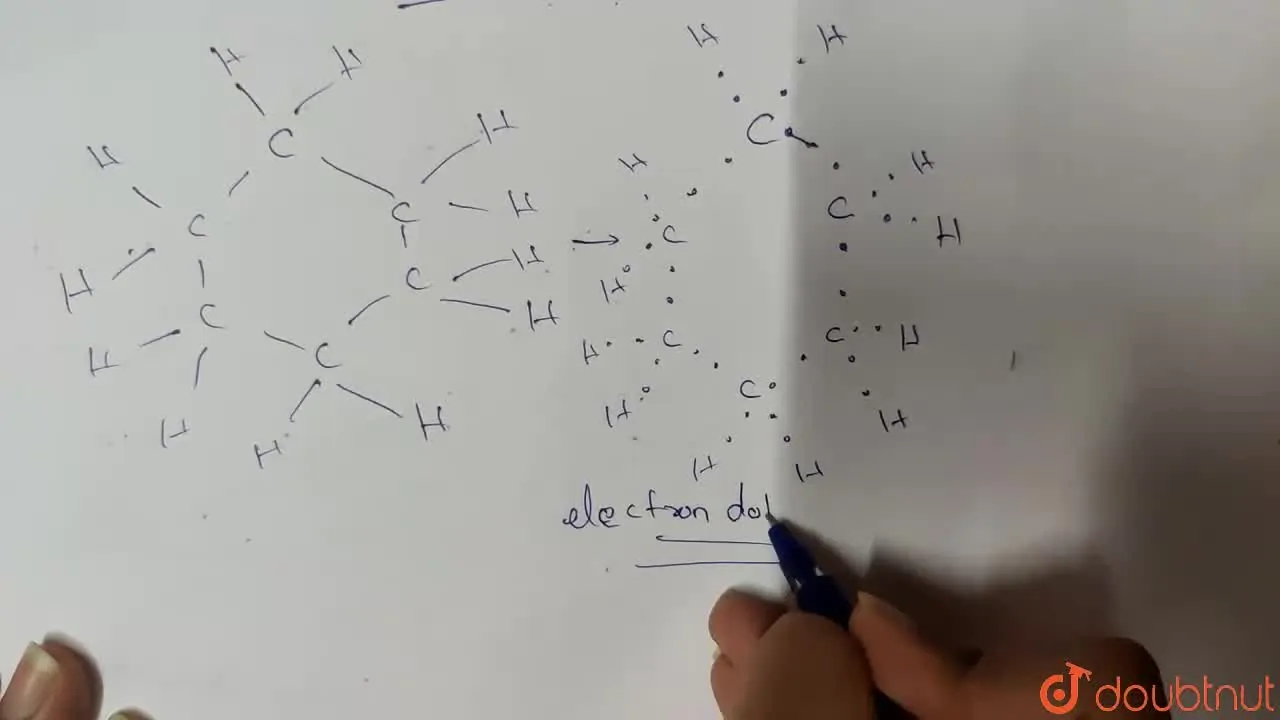 H H
H H
C C
H H
H H
C C
H H
C C
H H
H H
C C
H H
H H
C C
H H
C C
H H
H H
electron dot
doubtnut